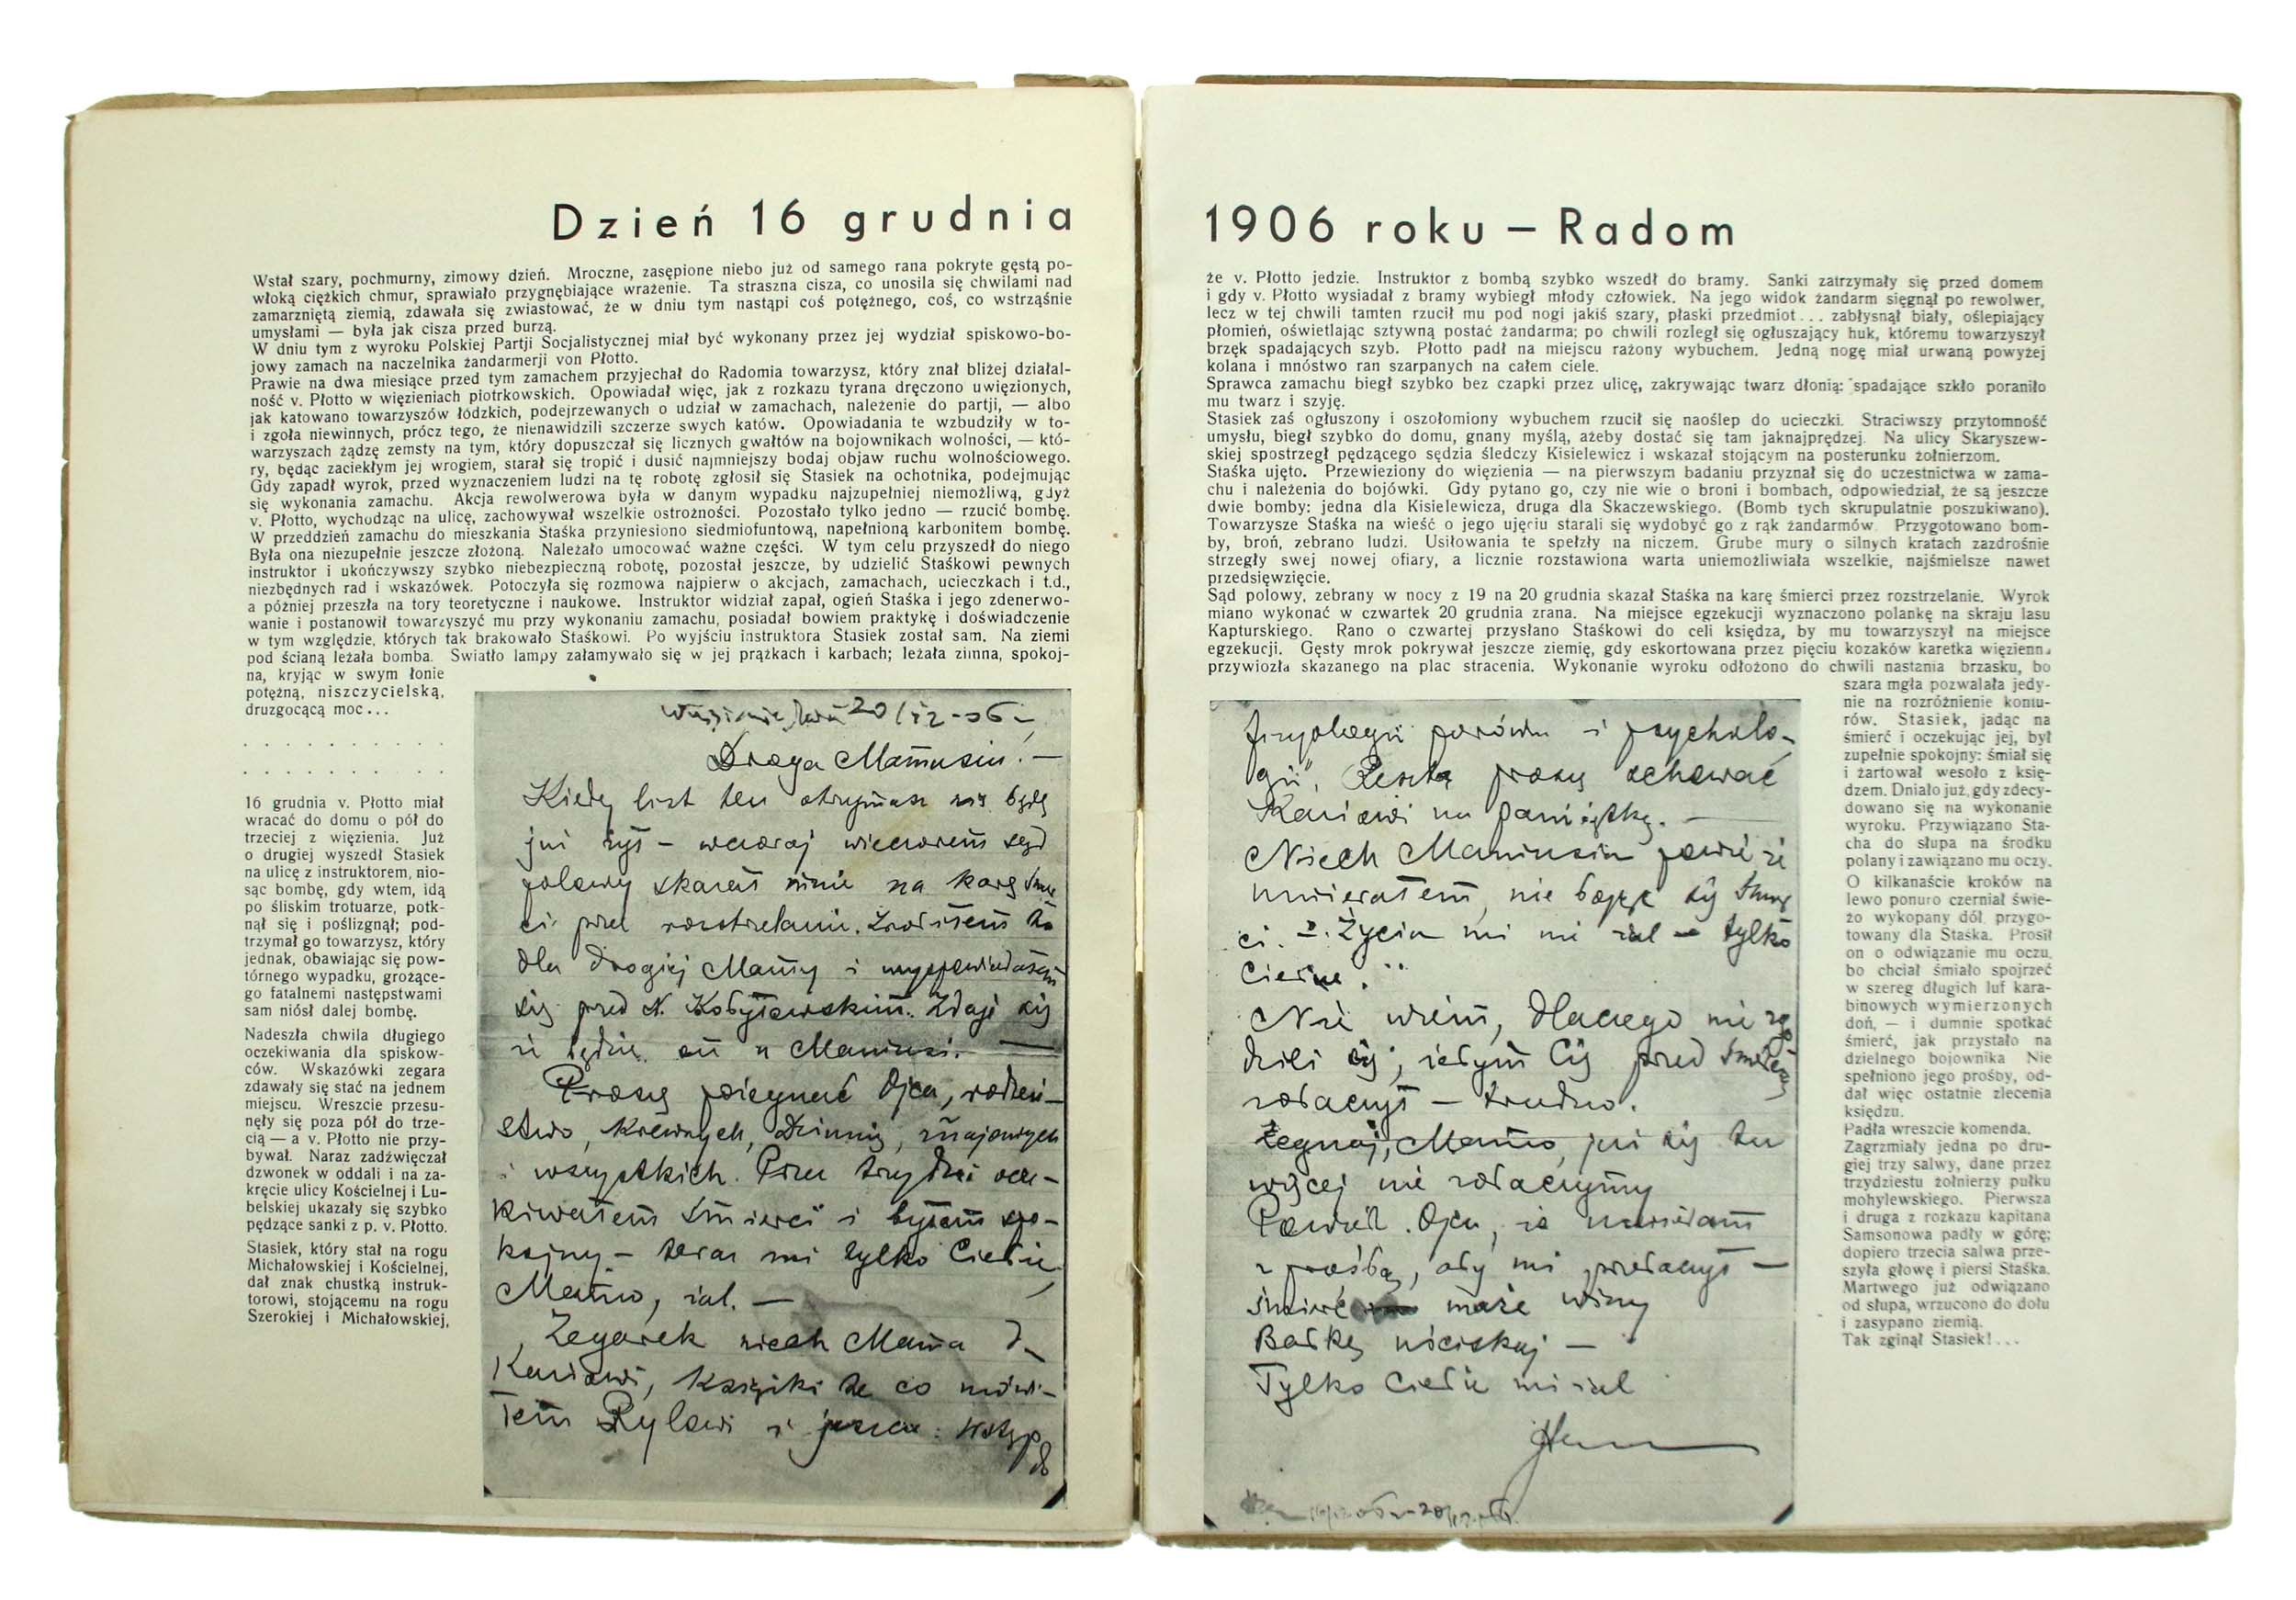 Dzień 16 grudnia
Wstał szary, pochmurny, zimowy dzień. Mroczne, zasępione niebo już od samego rana pokryte gęstą po-
włoką ciężkich chmur, sprawiało przygnębiające wrażenie. Ta straszna cisza, co unosiła się chwilami nad
zamarzniętą ziemią, zdawała się zwiastować, że w dniu tym nastąpi coś potężnego, coś, co wstrząśnie
umysłami — była jak cisza przed burzą.
W dniu tym z wyroku Polskiej Partji Socjalistycznej miał być wykonany przez jej wydział spiskowo-bo-
jowy zamach na naczelnika żandarmerji von Płotto.
Prawie na dwa miesiące przed tym zamachem przyjechał do Radomia towarzysz, który znał bliżej działal-
ność v. Płotto w więzieniach piotrkowskich. Opowiadał więc, jak z rozkazu tyrana dręczono uwięzionych,
jak katowano towarzyszów łódzkich, podejrzewanych o udział w zamachach, należenie do partji, — albo
i zgoła niewinnych, prócz tego, że nienawidzili szczerze swych katów. Opowiadania te wzbudziły w to-
warzyszach żądzę zemsty na tym, który dopuszczał się licznych gwałtów na bojownikach wolności, — któ-
ry, będąc zaciekłym jej wrogiem, starał się tropić i dusić najmniejszy bodaj objaw ruchu wolnościowego.
Gdy zapadł wyrok, przed wyznaczeniem ludzi na tę robotę zgłosił się Stasiek na ochotnika, podejmując
się wykonania zamachu. Akcja rewolwerowa była w danym wypadku najzupełniej niemożliwą, gdyż
v. Płotto, wychodząc na ulicę, zachowywał wszelkie ostrożności. Pozostało tylko jedno — rzucić bombę.
W przeddzień zamachu do mieszkania Staśka przyniesiono siedmiofuntową, napełnioną karbonitem bombę.
Była ona niezupełnie jeszcze złożoną. Należało umocować ważne części. W tym celu przyszedł do niego
instruktor i ukończywszy szybko niebezpieczną robotę, pozostał jeszcze, by udzielić Staśkowi pewnych
niezbędnych rad i wskazówek. Potoczyła się rozmowa najpierw o akcjach, zamachach, ucieczkach i t.d.,
a później przeszła na tory teoretyczne i naukowe. Instruktor widział zapał, ogień Staśka i jego zdenerwo-
wanie i postanowił towarzyszyć mu przy wykonaniu zamachu, posiadał bowiem praktykę i doświadczenie
w tym względzie, których tak brakowało Staśkowi. Po wyjściu instruktora Stasiek został sam. Na ziemi
pod ścianą leżała bomba. Światło lampy załamywało się w jej prążkach i karbach; leżała zimna, spokoj-
na, kryjąc w swym łonie
potężną, niszczycielską,
druzgocącą moc...
. . . . . . . . . .
. . . . . . . . . .
16 grudnia v. Płotto miał
wracać do domu o pół do
trzeciej z więzienia. Już
o drugiej wyszedł Stasiek
na ulicę z instruktorem, nio-
sąc bombę, gdy wtem, idą
po śliskim trotuarze, potk-
nął się i poślizgnął; pod-
trzymał go towarzysz, który
jednak, obawiając się pow-
tórnego wypadku, grożące-
go fatalnemi następstwami
sam niósł dalej bombę.
Nadeszła chwila długiego
oczekiwania dla spiskow-
ców. Wskazówki zegara
zdawały się stać na jednem
miejscu. Wreszcie przesu-
nęły się poza pół do trze-
cią — a v. Płotto nie przy-
bywał. Naraz zadźwięczał
dzwonek w oddali i na za-
kręcie ulicy Kościelnej i Lu-
belskiej ukazały się szybko
pędzące sanki z p. v. Płotto.
Stasiek, który stał na rogu
Michałowskiej i Kościelnej,
dał znak chustką instruk-
torowi, stojącemu na rogu
Szerokiej i Michałowskiej,
20/12-06
Droga Mamusiu! —
Kiedy list ten otrzymasz nie będę
już żył — wczoraj wieczorem sąd
polowy skazał mnie na karę śmier
ci przez rozstrzelanie. Zrobiłem to
dla drogiej Mamy i wyspowiadałem
się przed X. Kobyławskim. Zdaje się
że będzie on u Mamusi. —
Proszę pożegnać Ojca, rodzeń-
stwo, krewnych, znajomych
i wszystkich. Przez trzy dni ocze-
kiwałem śmierci i byłem spo-
kojny — teraz mi tylko Ciebie
Mamo, żal. —
Zegarek niech Mama d
Kaziowi, książki te co mówi-
łem Rylowi i jeszcze: Wstęp
do
1906 roku — Radom
że v. Płotto jedzie. Instruktor z bombą szybko wszedł do bramy. Sanki zatrzymały się przed domem
i gdy v. Płotto wysiadał z bramy wybiegł młody człowiek. Na jego widok żandarm sięgnął po rewolwer,
lecz w tej chwili tamten rzucił mu pod nogi jakiś szary, płaski przedmiot... zabłysnął biały, oślepiający
płomień, oświetlając sztywną postać żandarma; po chwili rozległ się ogłuszający huk, któremu towarzyszył
brzęk spadających szyb. Płotto padł na miejscu rażony wybuchem. Jedną nogę miał urwaną powyżej
kolana i mnóstwo ran szarpanych na całem ciele.
Sprawca zamachu biegł szybko bez czapki przez ulicę, zakrywając twarz dłonią: spadające szkło poraniło
mu twarz i szyję.
Stasiek zaś ogłuszony i oszołomiony wybuchem rzucił się naoślep do ucieczki. Straciwszy przytomność
umysłu, biegł szybko do domu, gnany myślą, ażeby dostać się tam jaknajprędzej. Na ulicy Skaryszew-
skiej spostrzegł pędzącego sędzia śledczy Kisielewicz i wskazał stojącym na posterunku żołnierzom.
Staśka ujęto. Przewieziony do więzienia — na pierwszym badaniu przyznał się do uczestnictwa w zama-
chu i należenia do bojówki. Gdy pytano go, czy nie wie o broni i bombach, odpowiedział, że są jeszcze
dwie bomby: jedna dla Kisielewicza, druga dla Skaczewskiego. (Bomb tych skrupulatnie poszukiwano).
Towarzysze Staśka na wieść o jego ujęciu starali się wydobyć go z rąk żandarmów. Przygotowano bom-
by, broń, zebrano ludzi. Usiłowania te spełzły na niczem. Grube mury o silnych kratach zazdrośnie
strzegły swej nowej ofiary, a licznie rozstawiona warta uniemożliwiała wszelkie, najśmielsze nawet
przedsięwzięcie.
Sąd polowy, zebrany w nocy z 19 na 20 grudnia skazał Staśka na karę śmierci przez rozstrzelanie. Wyrok
miano wykonać w czwartek 20 grudnia zrana. Na miejsce egzekucji wyznaczono polankę na skraju lasu
Kapturskiego. Rano o czwartej przysłano Staśkowi do celi księdza, by mu towarzyszył na miejsce
egzekucji. Gęsty mrok pokrywał jeszcze ziemię, gdy eskortowana przez pięciu kozaków karetka więzienna
przywiozła skazanego na plac stracenia. Wykonanie wyroku odłożono do chwili nastania brzasku, bo
szara mgła pozwalała jedy-
nie na rozróżnienie kontu-
rów. Stasiek, jadąc na
śmierć i oczekując jej, był
zupełnie spokojny: śmiał się
i żartował wesoło z księ-
dzem. Dniało już, gdy zdecy-
dowano się na wykonanie
wyroku. Przywiązano Sta-
cha do słupa na środku
polany i zawiązano mu oczy.
O kilkanaście kroków na
lewo ponuro czerniał świe-
żo wykopany dół, przygo-
towany dla Staśka. Prosił
on o odwiązanie mu oczu,
bo chciał śmiało spojrzeć
w szereg długich luf kara-
binowych wymierzonych
doń, — i dumnie spotkać
śmierć, jak przystało na
dzielnego bojownika Nie
spełniono jego prośby, od-
dał więc ostatnie zlecenia
księdzu.
Padła wreszcie komenda.
Zagrzmiały jedna po dru-
giej trzy salwy, dane przez
trzydziestu żołnierzy pułku
mohylewskiego. Pierwsza
i druga z rozkazu kapitana
Samsonowa padły w górę;
dopiero trzecia salwa prze-
szyła głowę i piersi Staśka.
Martwego już odwiązano
od słupa, wrzucono do dołu
i zasypano ziemią.
Tak zginął Stasiek!...
fizyologii porówn i psycholo-
gii". Resztę proszę schować
Kaziowi na pamiątkę. —
Niech Mamusia powie że
umierałem, nie bojąc się śmier
ci. Życia mi nie żal — tylko
Ciebie.
Nie wiem, dlaczego nie zgo
dzili się, żebym Cię przed śmiercią
zobaczył — trudno.
Żegnaj, Mamo, już się tu
więcej nie zobaczymy
Powiedz Ojcu, że umieram
z prośbą, aby mi przebaczył —
może winy
uściskaj —
Tylko Ciebie mi żal